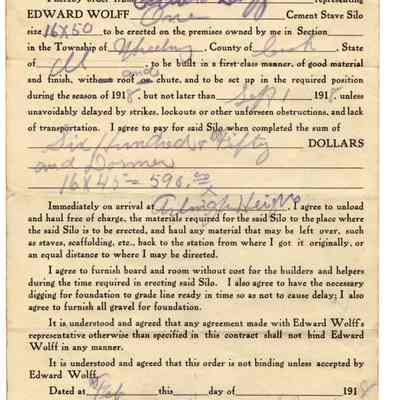 I hereby order from representing
EDWARD WOLFF One Cement Stave Silo
size 16x50 to be erected on the premises owned by me in Section
in the Township of Wheeling, County of Cook, State
of Ill, to be built in a first-class manner, of good material
and finish, without roof or and chute, and to be set up in the required position
during the season of 1918, but not later than Sept 1 1918, unless
unavoidably delayed by strikes, lockouts or other unforseen obstructions, and lack
of transportation. I agree to pay for said Silo when completed the sum of
Six Hundred & Fifty DOLLARS
and Dormer
16 x 45 = 590.00
Immediately on arrival at Arlington Heights, I agree to unload
and haul free of charge, the materials required for the said Silo to the place where
the said Silo is to be erected, and haul any material that may be left over, such
as staves, scaffolding, etc., back to the station from where I got it originally, or
an equal distance to where I may be directed.
I agree to furnish board and room without cost for the builders and helpers
during the time required in erecting said Silo. I also agree to have the necessary
digging for foundation to grade line ready in time so as not to cause delay; I also
agree to furnish all gravel for foundation.
It is understood and agreed that any agreement made with Edward Wolff's
representative otherwise than specified in this contract shall not bind Edward
Wolff in any manner.
It is understood and agreed that this order is not binding unless accepted by
Edward Wolff.
Dated at this day of 1918